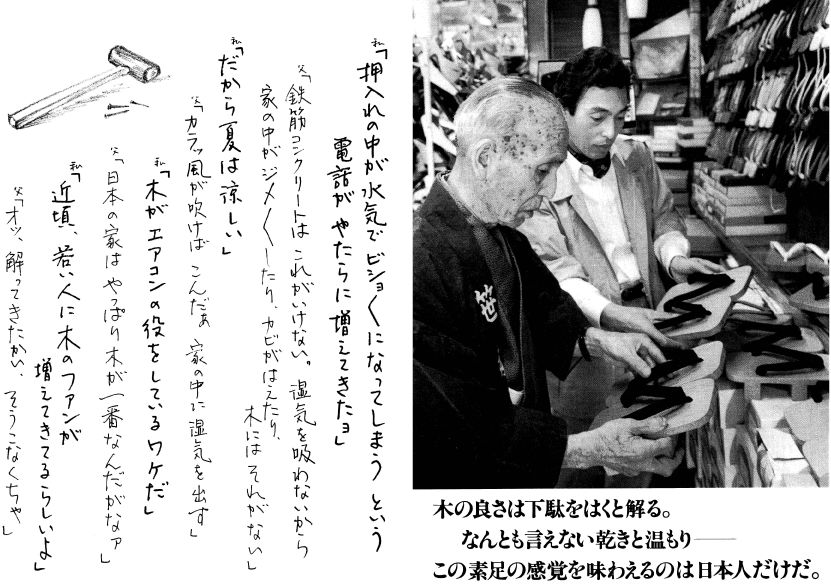 私「押入れの中が水気でビショ〱になってしまうという
電話がやたらに増えてきたョ」
父「鉄筋コンクリートはこれがいけない。湿気を吸わないから
家の中がジメ〱したり、カビがはえたり、
木にはそれがない」
私「だから夏は涼しい」
父「カラッ風が吹けばこんだぁ家の中に湿気を出す」
私「木がエアコンの役をしているワケだ」
父「日本の家はやっぱり木が一番なんだがなァ」
私「近頃、若い人に木のファンが
増えてきてるらしいよ」
父「オッ、解ってきたかい、そうこなくちゃ」
笹
木の良さは下駄をはくと解る。
なんとも言えない乾きと温もり——
この素足の感覚を味わえるのは日本人だけだ。